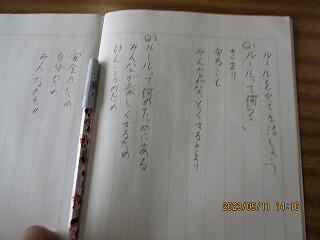 ルールを守て生活しよう
Q1 ルールって何?
きまり
守ること
みんながなっとくするきまり
Q2 ルールって何のためにある
みんなが楽しくするため
けんこうのため
安全のため
自分のため
みんなのため
2023/09/11 14:10